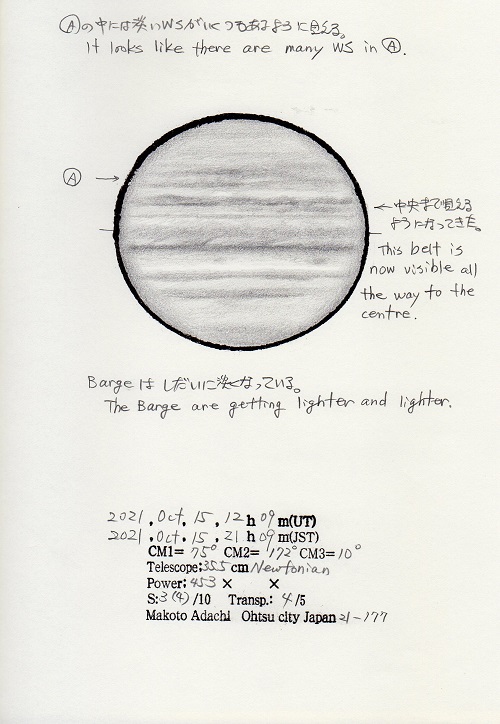 Ⓐの中には淡いWSがいくつもあるように見える。
It looks like there are many WS in Ⓐ.
Ⓐ →
← 中央まで見える
ようになってきた。
This belt is
now visible all
the way to the
centre.
Bargeは しだいに淡くなっている。
The Barge are getting lighter and lighter.
2021 , Oct , 15 , 12 h 09 m(UT)
2021 , Oct , 15 , 21 h 09 m(JST)
CM1= 75° CM2= 172° CM3= 10°
Telescope: 355 cm Newtonian
Power: 453 × ×
S: 3(4) /10 Transp.: 4 /5
Makoto Adachi Ohtsu city Japan 21-177